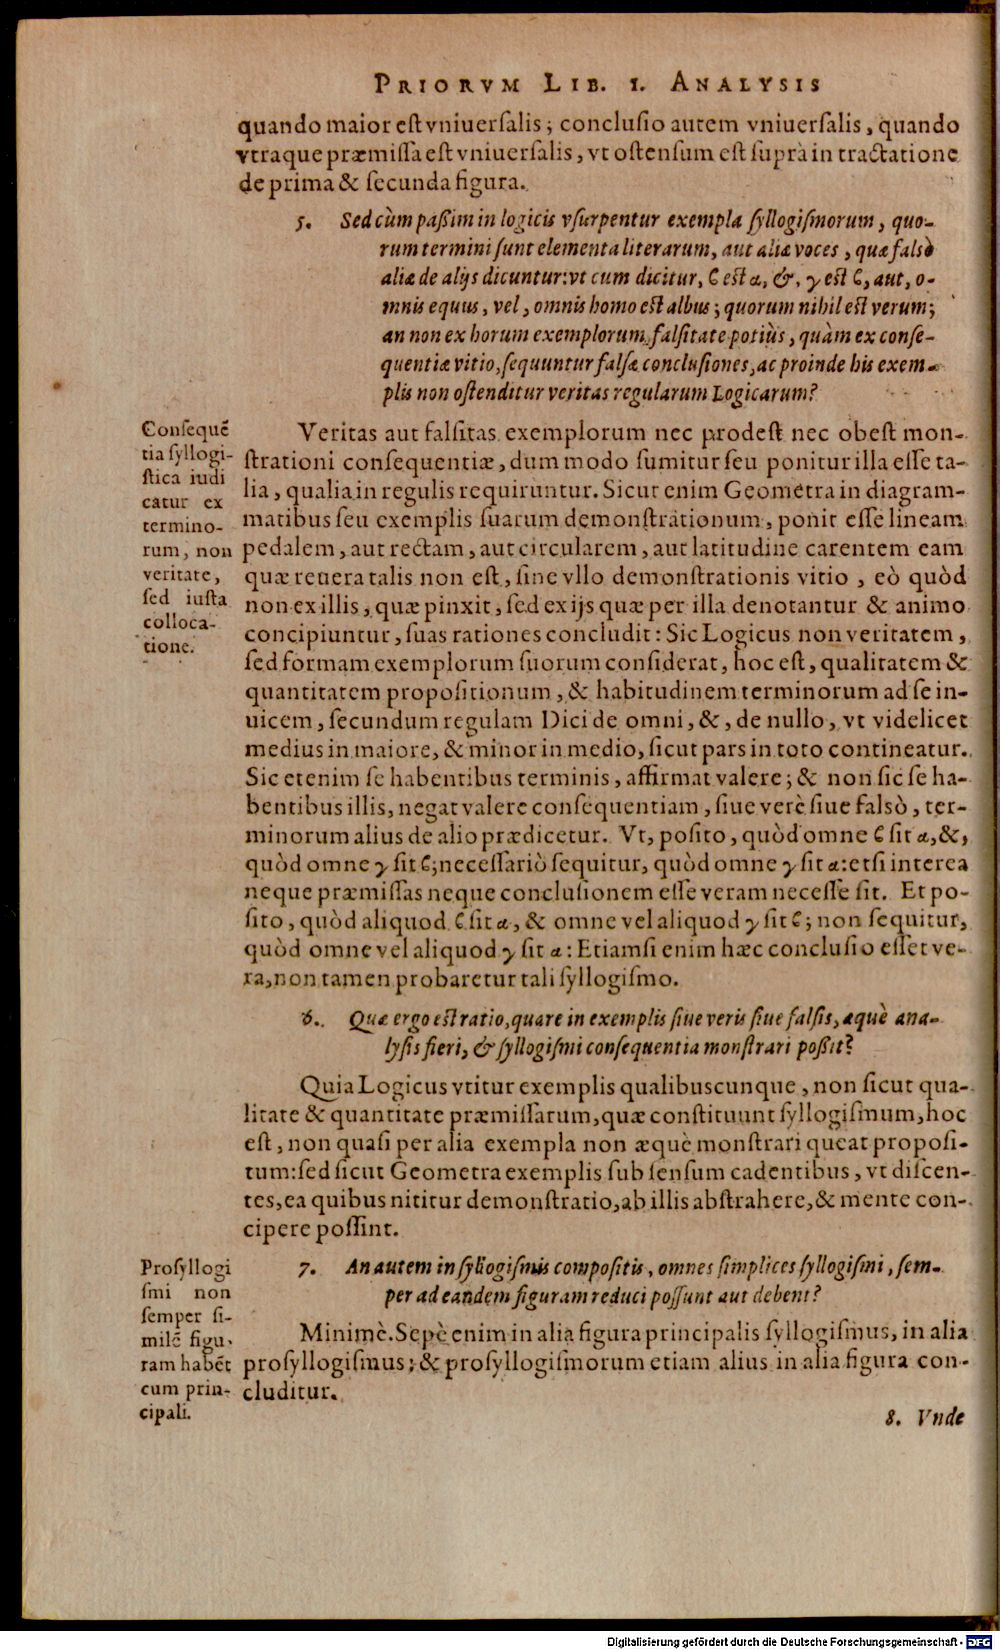 PRIORVM LIB. 1. ANALYSIS
quando maior est vniuersalis; conclusio autem vniuersalis, quando
vtraque præmissa est vniuersalis, vt ostensum est suprà in tractatione
de prima & secunda figura.
5. Sed cùm paßim in logicis vsurpentur exempla syllogismorum, quo-
rum termini sunt elementa literarum, aut aliæ voces, quæ falsò
aliæ de alijs dicuntur: vt cum dicitur, ϐ est α, &, γ est ϐ, aut, o-
mnis equus, vel, omnis homo est albus; quorum nihil est verum;
an non ex horum exemplorum falsitate potiùs, quàm ex conse-
quentiæ vitio, sequuntur falsæ conclusiones, ac proinde his exem-
plis non ostenditur veritas regularum Logicarum?
Consequẽ
tia syllogi-
stica iudi
catur ex
termino-
rum, non
veritate,
sed iusta
colloca-
tione.
Veritas aut falsitas exemplorum nec prodest nec obest mon-
strationi consequentiæ, dum modo sumitur seu ponitur illa esse ta-
lia, qualia in regulis requiruntur. Sicut enim Geometra in diagram-
matibus seu exemplis suarum demonstrationum, ponit esse lineam
pedalem, aut rectam, aut circularem, aut latitudine carentem eam
quæ reuera talis non est, sine vllo demonstrationis vitio, eò quòd
non ex illis, quæ pinxit, sed ex ijs quæ per illa denotantur & animo
concipiuntur, suas rationes concludit: Sic Logicus non veritatem,
sed formam exemplorum suorum considerat, hoc est, qualitatem &
quantitatem propositionum, & habitudinem terminorum ad se in-
uicem, secundum regulam Dici de omni, &, de nullo, vt videlicet
medius in maiore, & minor in medio, sicut pars in toto contineatur.
Sic etenim se habentibus terminis, affirmat valere; & non sic se ha-
bentibus illis, negat valere consequentiam, siue verè siue falsò, ter-
minorum alius de alio prædicetur. Vt, posito, quòd omne ϐ sit α, &,
quòd omne γ sit ϐ; necessariò sequitur, quòd omne γ sit α: etsi interea
neque præmissas neque conclusionem esse veram necesse sit. Et po-
sito, quòd aliquod ϐ sit α, & omne vel aliquod γ sit ϐ; non sequitur,
quòd omne vel aliquod γ sit α: Etiamsi enim hæc conclusio esset ve-
ra, non tamen probaretur tali syllogismo.
6. Quæ ergo est ratio, quare in exemplis siue veris siue falsis, æquè ana-
lysis fieri, & syllogismi consequentia monstrari poßit?
Quia Logicus vtitur exemplis qualibuscunque, non sicut qua-
litate & quantitate præmissarum, quæ constituunt syllogismum, hoc
est, non quasi per alia exempla non æquè monstrari queat proposi-
tum: sed sicut Geometra exemplis sub sensum cadentibus, vt discen-
tes, ea quibus nititur demonstratio, ab illis abstrahere, & mente con-
cipere possint.
Prosyllogi
smi non
semper si-
milẽ figu-
ram habẽt
cum prin-
cipali.
7. An autem in syllogismis compositis, omnes simplices syllogismi, sem-
per ad eandem figuram reduci possunt aut debent?
Minimè. Sepè enim in alia figura principalis syllogismus, in alia
prosyllogismus; & prosyllogismorum etiam alius in alia figura con-
cluditur.
8. Vnde
Digitalisierung gefördert durch die Deutsche Forschungsgemeinschaft - DFG